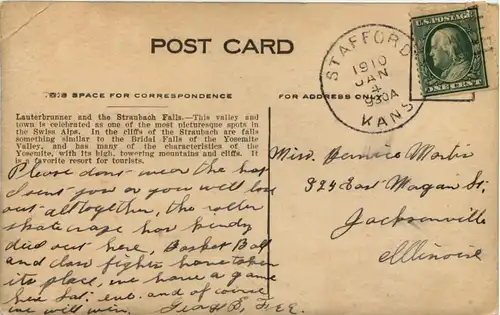 POST CARD
STAFFORD
1910
JAN
4
930A
KANS
U.S. POSTAGE
ONE CENT
THIS SPACE FOR CORRESPONDENCE
FOR ADDRESS ONLY
Lauterbrunner and the Straubach Falls.—This valley and
town is celebrated as one of the most picturesque spots in
the Swiss Alps. In the cliffs of the Straubach are falls
something similar to the Bridal Falls of the Yosemite
Valley, and has many of the characteristics of the
Yosemite, with its high, towering mountains and cliffs. It
is a favorite resort for tourists.
Please dont wear the hat
doesnt you or you will lose
out altogether, the roller
skate craze has kindy
died out here, Basket Ball
and class fights have taken
its place, we have a game
here Sat. eve. and of course
we will win. George S. Free.
Miss. Bernice Martin
324 East Morgan St,
Jacksonville
Illinois